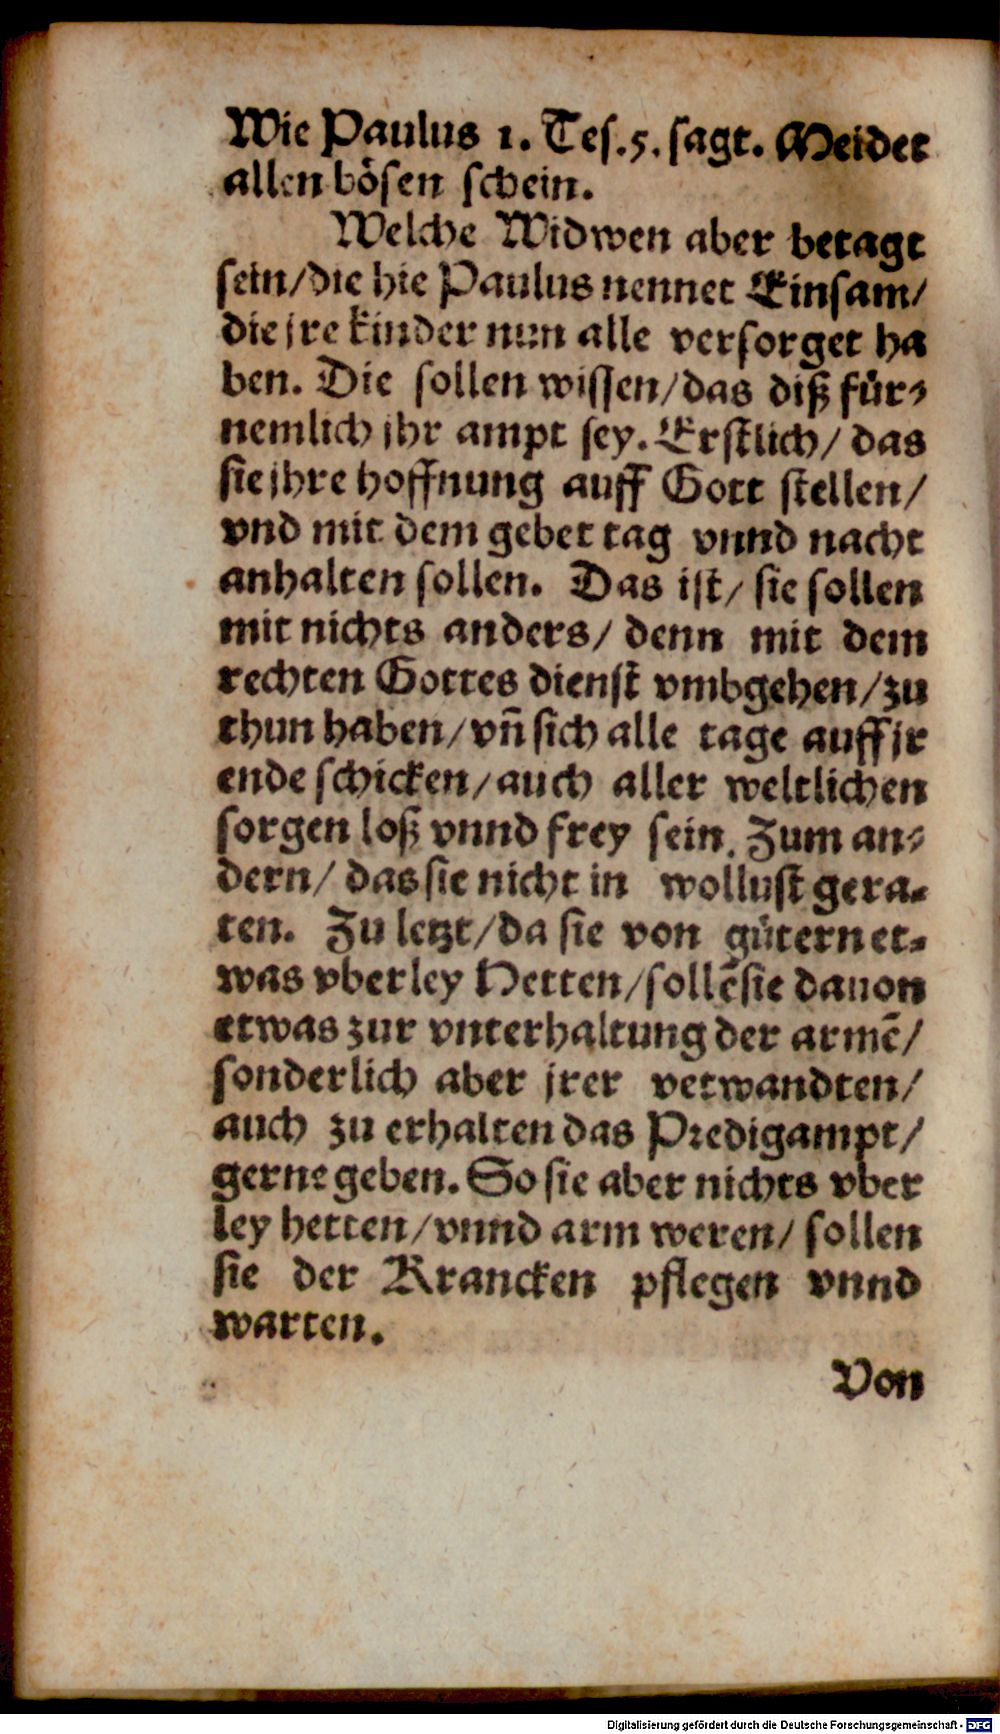 Wie Paulus 1. Tes.5. sagt. Meidet
allen bösen schein.
Welche Widwen aber betagt
sein/die hie Paulus nennet Einsam/
die jre kinder nun alle versorget ha
ben. Die sollen wissen/das diß für-
nemlich jhr ampt sey. Erstlich/ das
sie jhre hoffnung auff Gott stellen/
vnd mit dem gebet tag vnnd nacht
anhalten sollen. Das ist/ sie sollen
mit nichts anders/ denn mit dem
rechten Gottes dienst vmbgehen/zu
thun haben/vñ sich alle tage auff jr
ende schicken/auch aller weltlichen
sorgen loß vnnd frey sein. Zum an-
dern/ das sie nicht in wollust gera-
ten. Zu letzt/da sie von gütern et-
was vberley Hetten/sollẽ sie dauon
etwas zur vnterhaltung der armẽ/
sonderlich aber jrer verwandten/
auch zu erhalten das Predigampt/
gerne geben. So sie aber nichts vber
ley hetten/vnnd arm weren/ sollen
sie der Krancken pflegen vnnd
warten.
Von
Digitalisierung gefördert durch die Deutsche Forschungsgemeinschaft - DFG